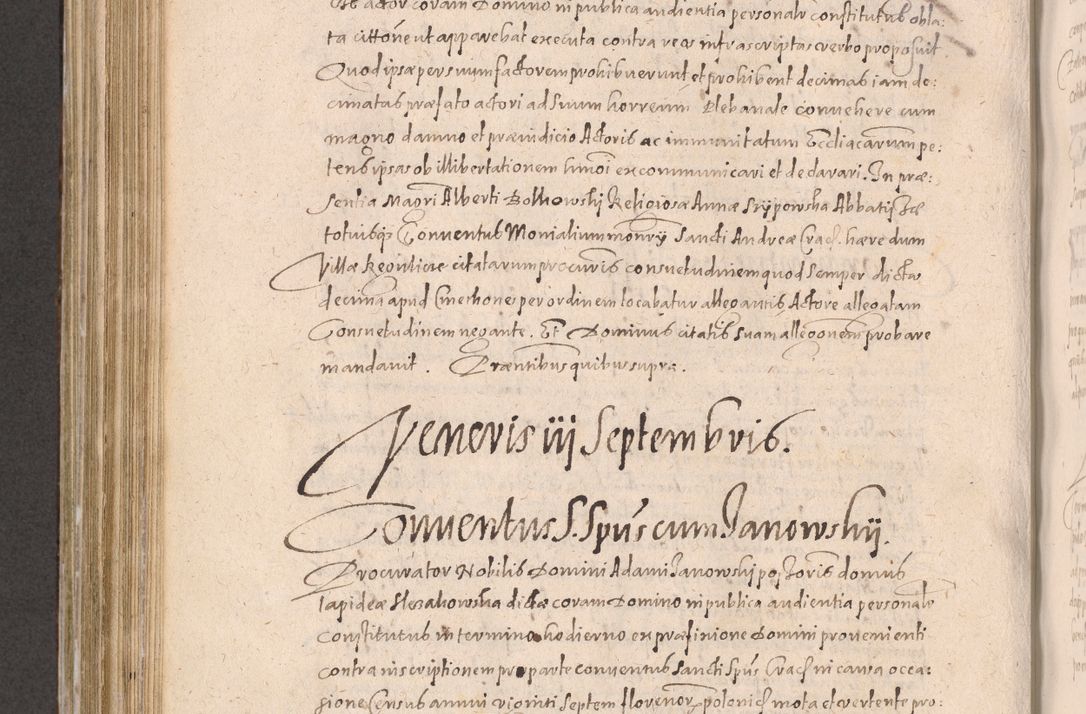 Ut actor coram Domino in publica audientia personalr constitutus obla:
ta cittone ut apparebat executa contra reas infrascriptas verbo proposuit.
Quod ipsæ persuum factorem prohibuerunt et prohibent decimas iam de:
cimatas præfato actori ad suum horreum Plebanale convehere cum
magno damno et præiudicio Actoris ac immunitatum Eccliacarum pe:
tens ipsas ob illibertationem hmoi excommunicari et declarari. In præ:
sentia Magri Alberti Bolkowskij Religiosæ Annæ Srzypowska Abbatissæ
totiusq3 Conventus Monialium monrij Sancti Andreæ Crac. hæredum
Villæ Regulicze citatarum procuris consuetudinem quod semper dictæ
decimæ apud Cmethones per ordinem locabatur allegantis Actore allegatam
Consuetudinem negante. Et Dominus citatis suam allegonem probare
mandavit. Præntibus quibus supra.
Veneris iij Septembris.
Conventus S. Spus cum Janowskij.
Procurator Nobilis Domini Adami Janowskij possoris domus
lapideæ Slezakowska dictæ coram Domino in publica audientia personalr
constitutus in termino hodierno ex præfixione Domini provenienti
contra inscriptionem pro parte conventus Sancti Spus Crac in causa occa:
sione Census annui viginti septem florenor polonic mota et vertente pro: